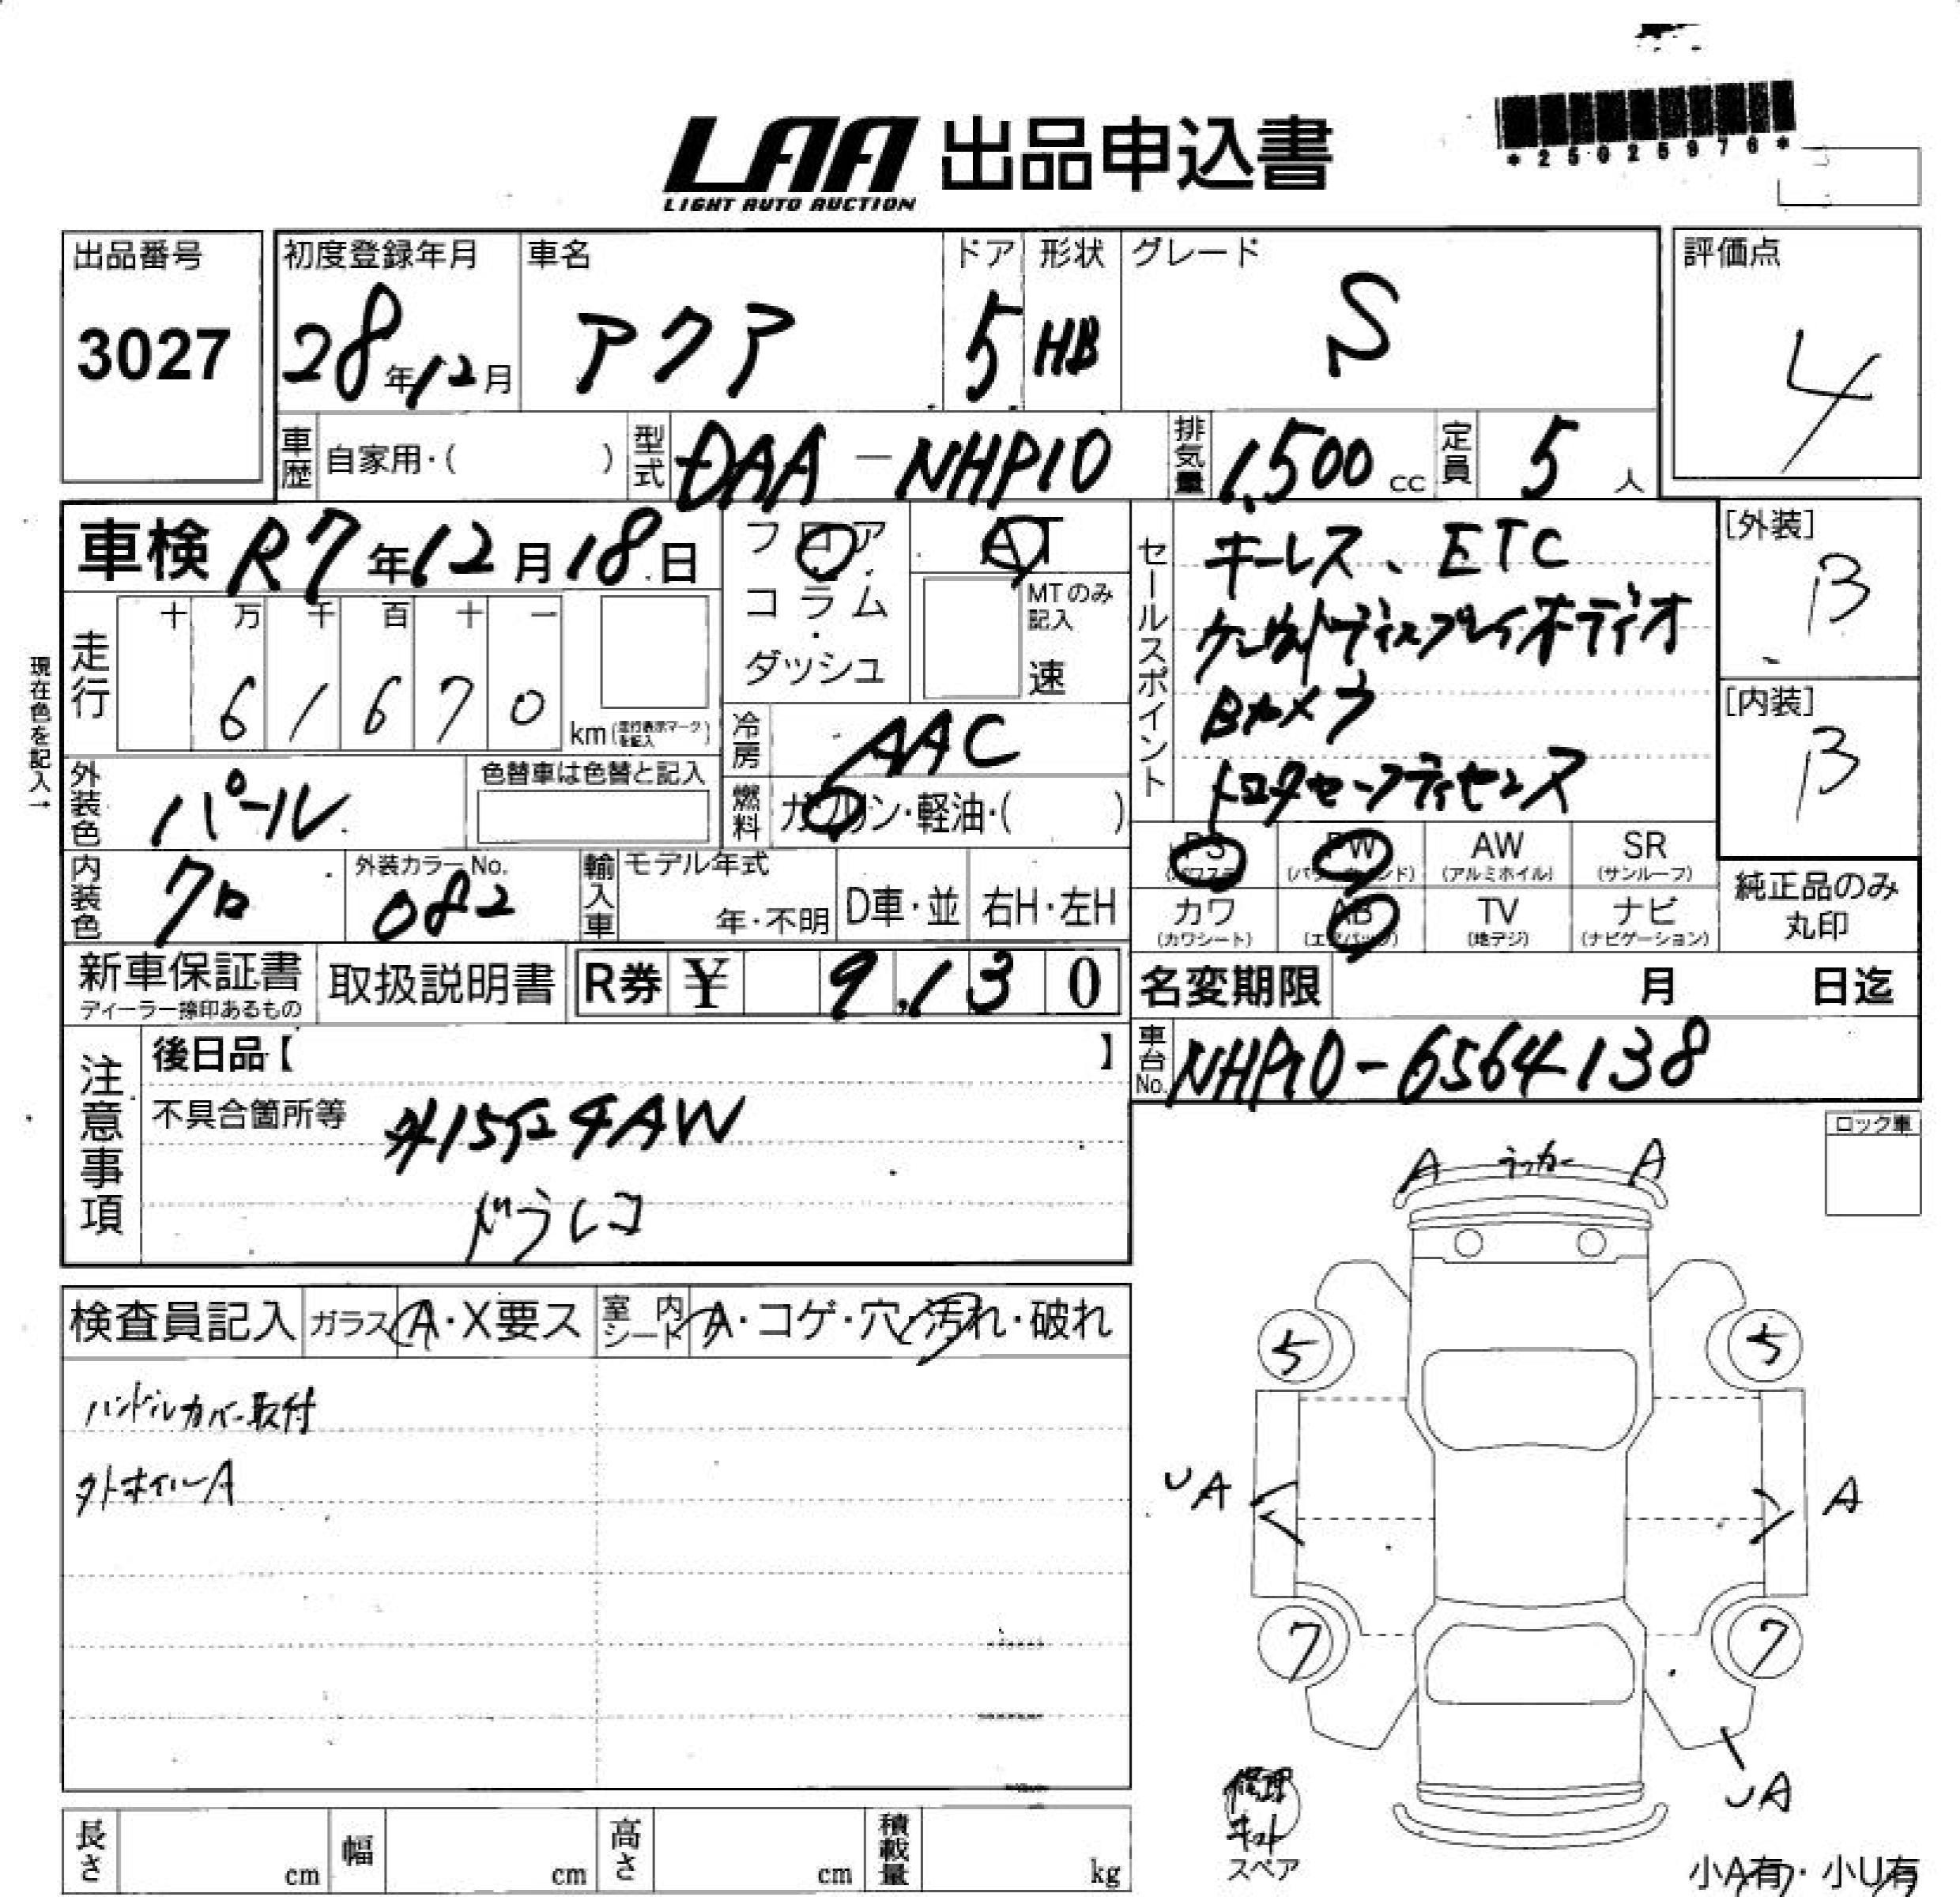 LAA 出品申込書
LIGHT AUTO AUCTION
*25025976*
出品番号
3027
初度登録年月
28年12月
車名
アクア
ドア
5
形状
HB
グレード
S
評価点
4
車歴 自家用・( )
型式 DAA-NHP10
排気量 1,500 cc
定員 5 人
車検 R7年12月18日
フロア
コラム
・
ダッシュ
AT
MTのみ記入
速
セールスポイント
キーレス、ETC
ケンウッドディスプレイオーディオ
Bカメラ
トヨタセーフティセンス
[外装]
B
[内装]
B
現在色を記入→
走行
十 万 千 百 十 一
6 1 6 7 0
km(走行表示マークを記入)
冷房 AAC
燃料 ガソリン・軽油・( )
外装色 パール
色替車は色替と記入
内装色 クロ
外装カラーNo.
082
輸入車
モデル年式
年・不明
D車・並
右H・左H
PS
(パワステ)
PW
(パワーウィンド)
AW
(アルミホイル)
SR
(サンルーフ)
カワ
(カワシート)
AB
(エアバッグ)
TV
(地デジ)
ナビ
(ナビゲーション)
純正品のみ
丸印
新車保証書
ディーラー捺印あるもの
取扱説明書
R券 ¥ 9,130
名変期限 月 日迄
注意事項
後日品【 】
不具合箇所等 外15インチAW
ドラレコ
車台No. NHP10-6564138
ロック車
A ラッカー A
5 5
UA A
7 7
UA
検査員記入
ガラス A・X要ス
室内シート A・コゲ・穴・汚れ・破れ
ハンドルカバー取付
外ホイルA
修理
キット
スペア
小A有・小U有
長さ cm
幅 cm
高さ cm
積載量 kg